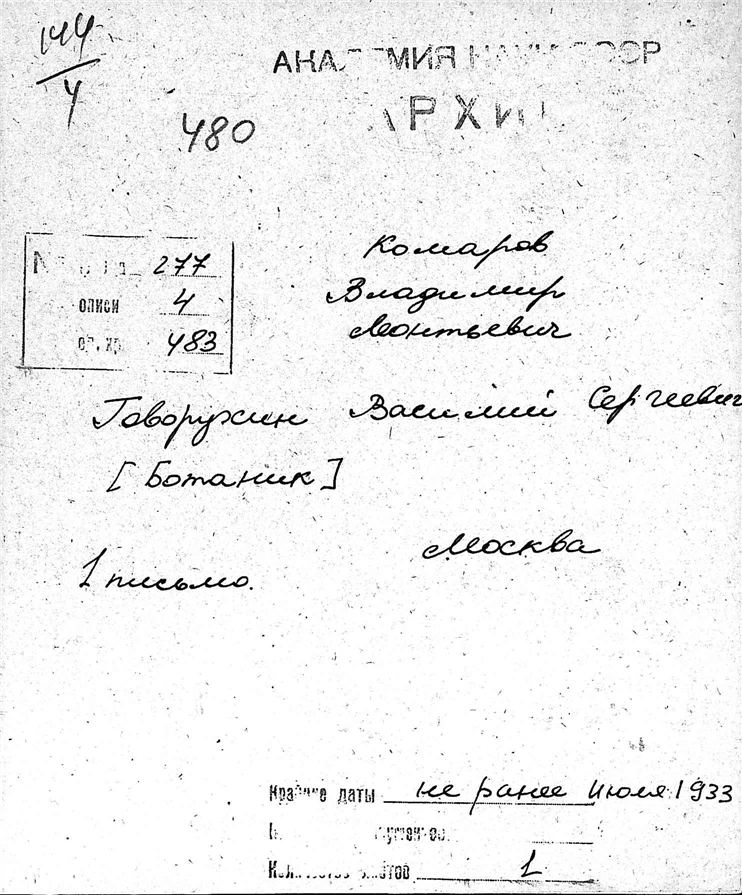 144
4
480
АКАДЕМИЯ НАУК СССР
АРХИВ
277
описи 4
ед. хр. 483
Комаров
Владимир
Леонтьевич
Говорухин Василий Сергеевич
[Ботаник]
Москва
1 письмо.
Крайние даты не ранее июля 1933
Количество листов 1